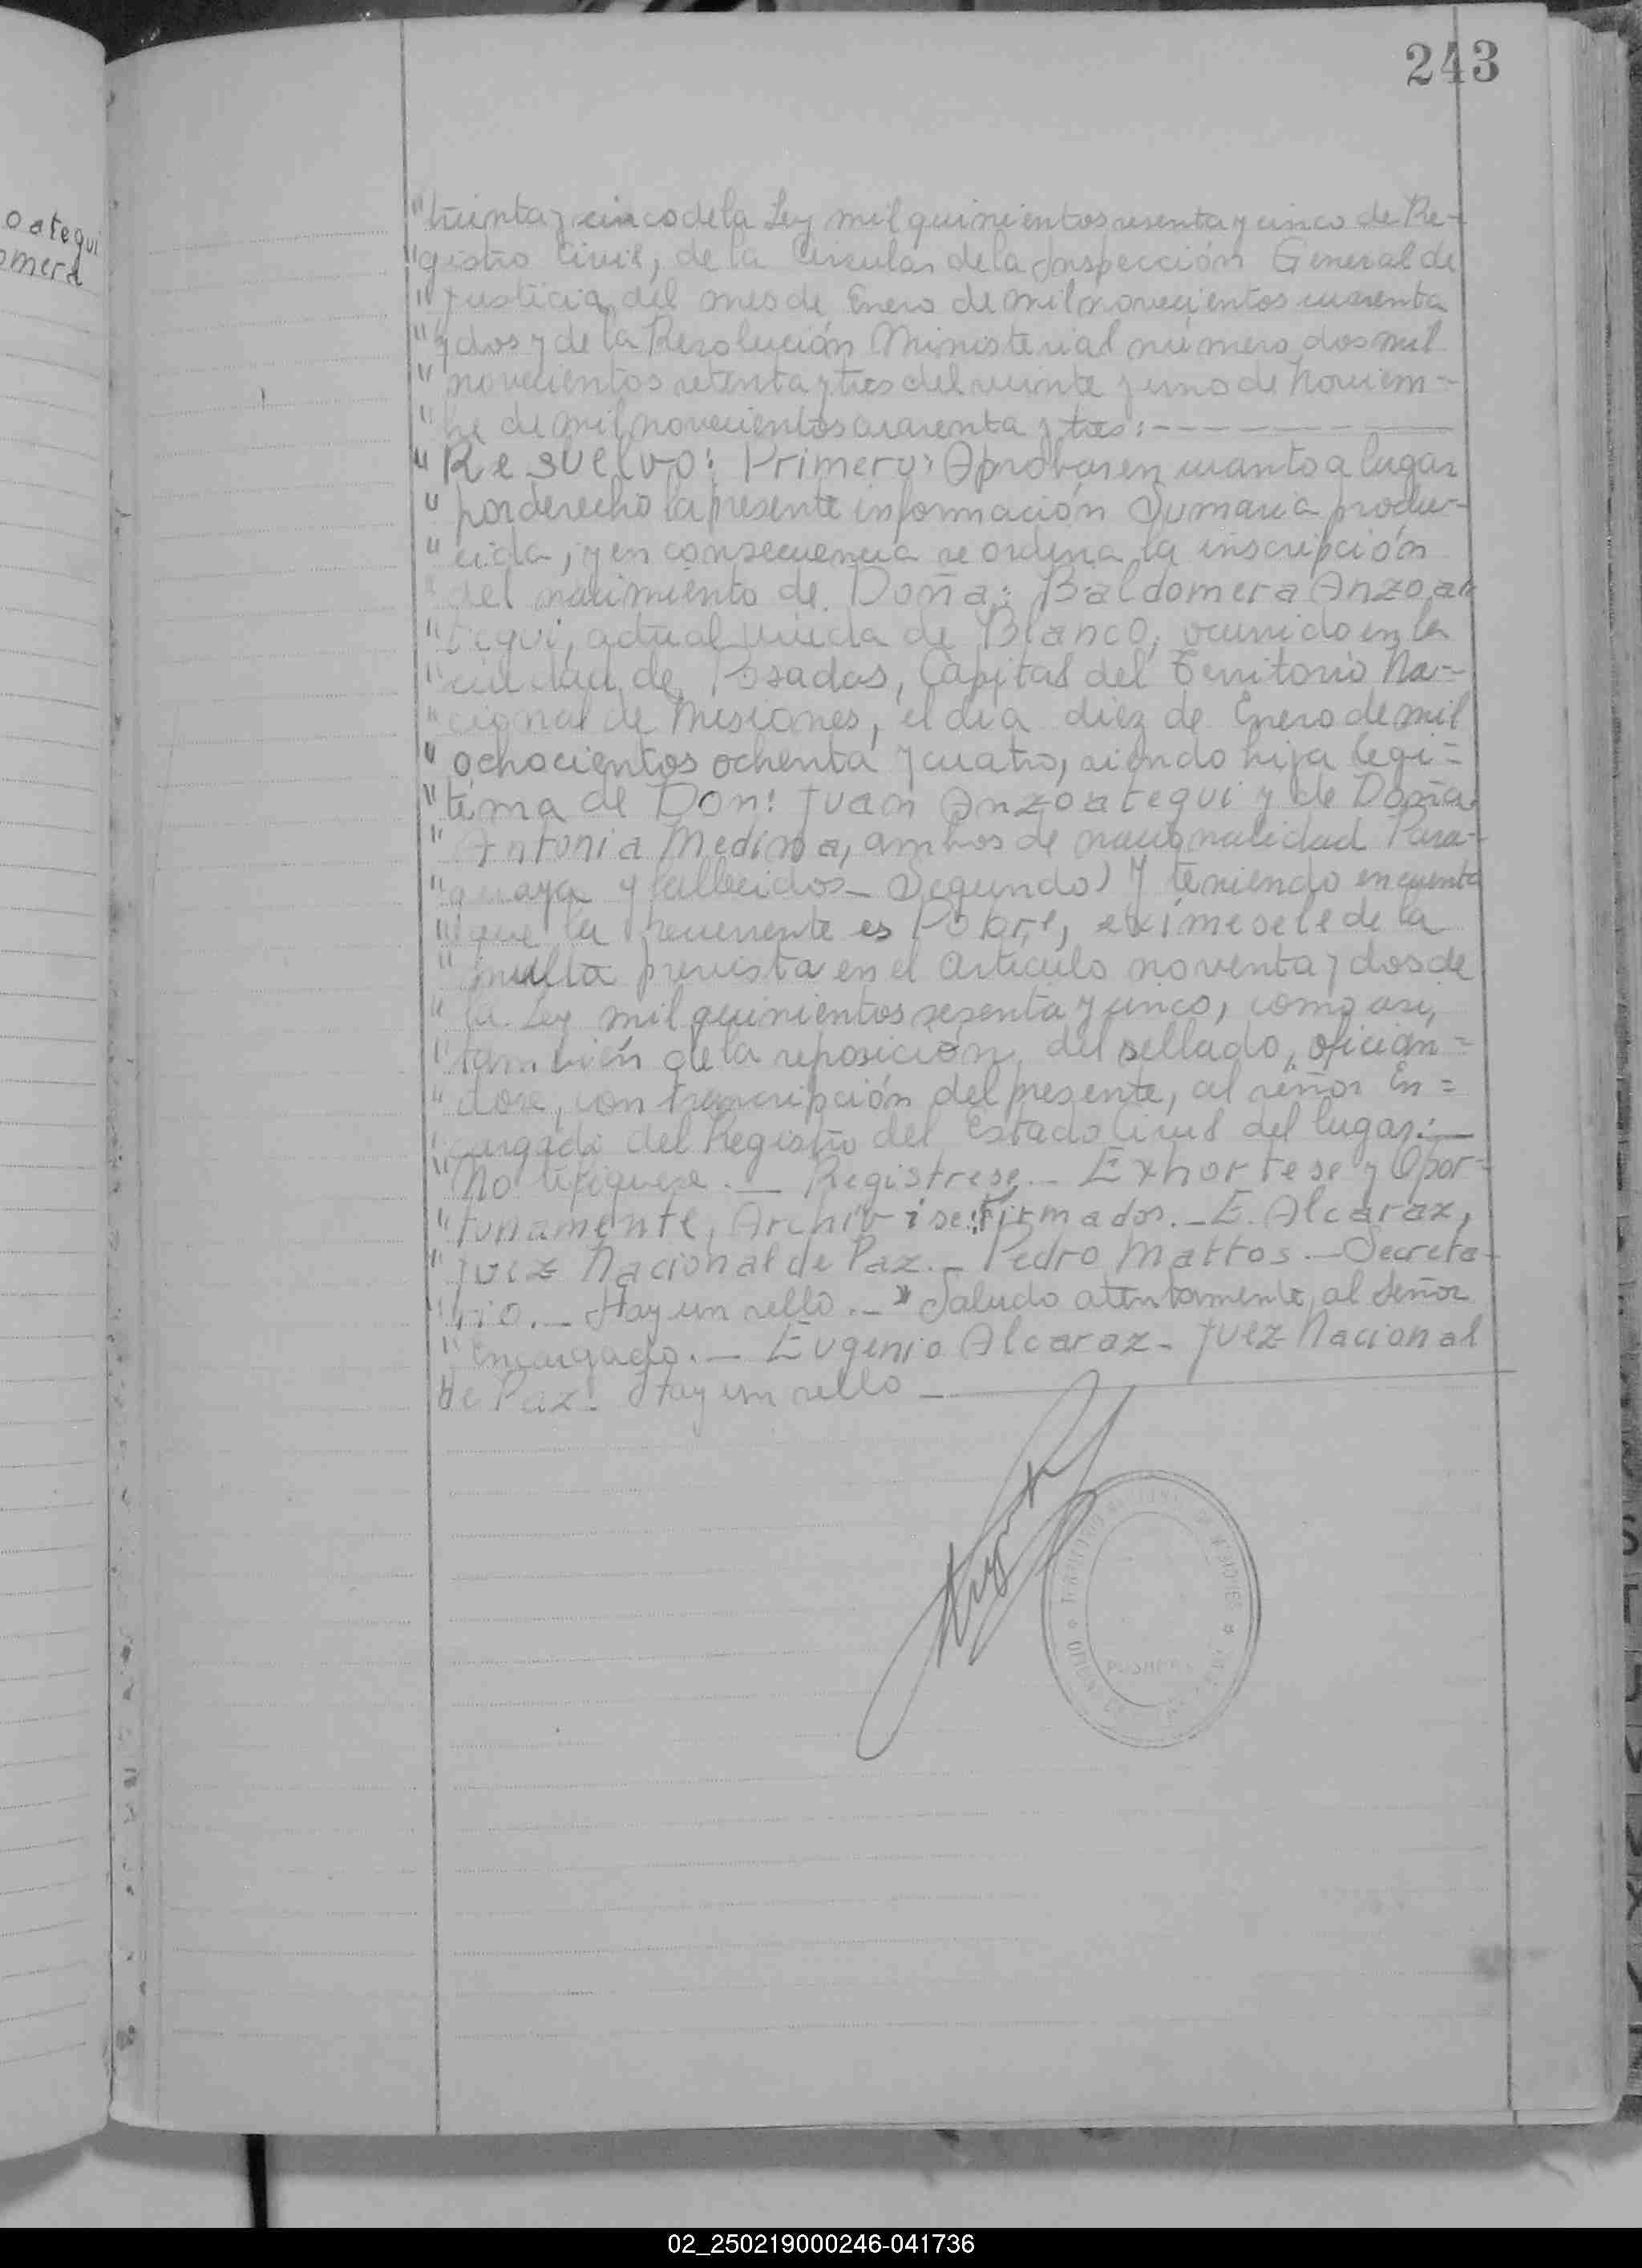 243
oategui
omera
"treinta y cinco de la Ley mil quinientos sesenta y cinco de Re-
"gistro Civil, de la Circular de la Inspección General de
"Justicia del mes de Enero de mil novecientos cuarenta
"y dos y de la Resolución Ministerial número dos mil
"novecientos setenta y tres del veinte y uno de Noviem=
"bre de mil novecientos cuarenta y tres:-
"Resuelvo: Primero: Aprobar en cuanto a lugar
"por derecho la presente información Sumaria produ-
"cida, y en consecuencia se ordena la inscripción
"del nacimiento de Doña: Baldomera Anzoa=
"tegui, actual viuda de Blanco, ocurrido en la
"ciudad de Posadas, Capital del Territorio Na-
"cional de Misiones, el día diez de Enero de mil
"ochocientos ochenta y cuatro, siendo hija legi=
"tima de Don: Juan Anzoategui y de Doña
"Antonia Medina, ambos de nacionalidad Para-
"guaya y fallecidos_ Segundo) Y teniendo en cuenta
"que la recurrente es Pobre, eximesele de la
"multa prevista en el artículo noventa y dos de
"la Ley mil quinientos sesenta y cinco, como asi,
"también de la reposición del sellado, oficián=
"dose, con transcripción del presente, al señor En=
"cargado del Registro del Estado Civil del lugar:_
"Notifiquese._ Registrese_ Exhortese y Opor-
"tunamente, Archivise: Firmados._ E. Alcaraz,
"Juez Nacional de Paz._ Pedro Mattos._ Secreta-
"rio._ Hay un sello._" Saludo atentamente al Señor
"Encargado._ Eugenio Alcaraz_ Juez Nacional
de Paz_ Hay un sello_
POSADAS
02_250219000246-041736